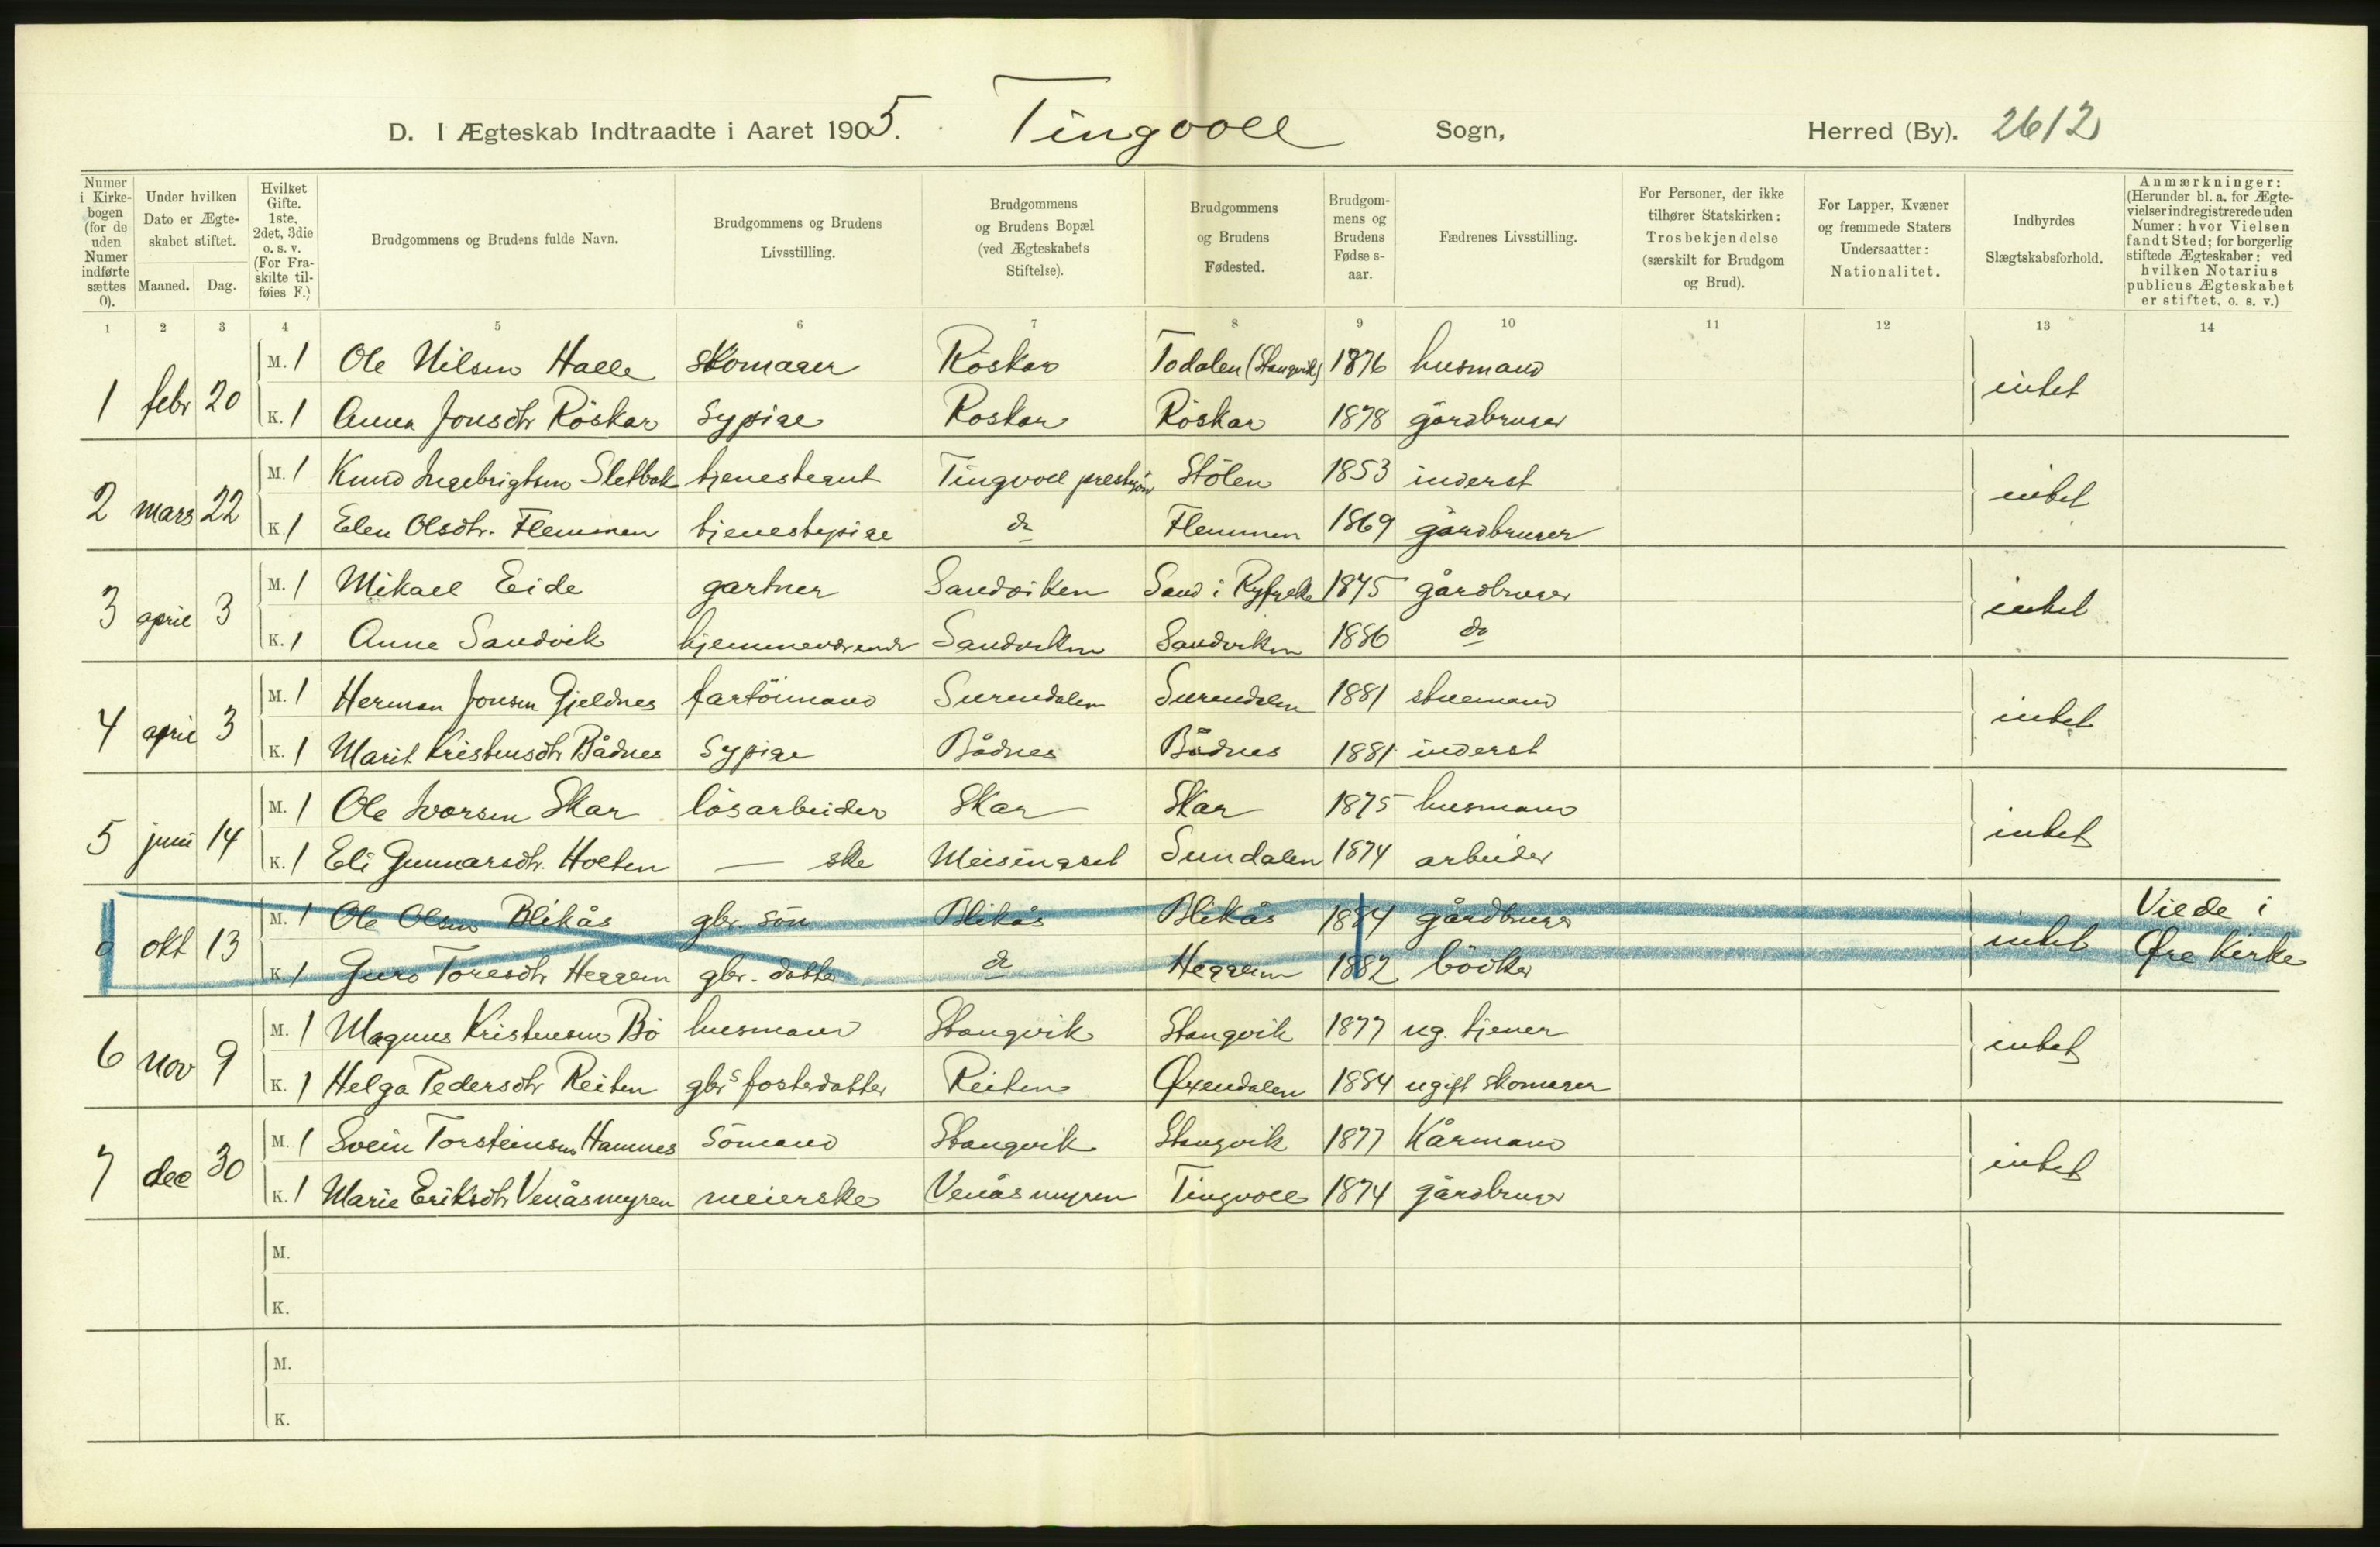 D. I Ægteskab Indtraadte i Aaret 1905. Tingvoll Sogn, Herred (By). 2612
Numer i Kirke-bogen (for de uden Numer indførte sættes 0).
Under hvilken Dato er Ægte-skabet stiftet.
Maaned. Dag.
Hvilket Gifte. 1ste, 2det, 3die o. s. v. (For Fra-skilte til-føies F.)
Brudgommens og Brudens fulde Navn.
Brudgommens og Brudens Livsstilling.
Brudgommens og Brudens Bopæl (ved Ægteskabets Stiftelse).
Brudgommens og Brudens Fødested.
Brudgom-mens og Brudens Fødse s-aar.
Fædrenes Livsstilling.
For Personer, der ikke tilhører Statskirken: Trosbekjendelse (særskilt for Brudgom og Brud).
For Lapper, Kvæner og fremmede Staters Undersaatter: Nationalitet.
Indbyrdes Slægtskabsforhold.
Anmærkninger: (Herunder bl. a. for Ægte-vielser indregistrerede uden Numer: hvor Vielsen fandt Sted; for borgerlig stiftede Ægteskaber: ved hvilken Notarius publicus Ægteskabet er stiftet, o. s. v.)
1 2 3 4 5 6 7 8 9 10 11 12 13 14
M. 1 Ole Nilsen Halle skomager Röskar Todalen (Stangvik) 1876 husmand
1 febr 20 intet
K. 1 Anna Jonsdtr Röskar sypige Roskar Röskar 1878 gårdbruger
M. 1 Knud Ingebrigtsen Sletbak tjenestegut Tingvoll prestgård Stölen 1853 inderst
2 mars 22 intet
K. 1 Elen Olsdtr. Flemmen tjenestepige do Flemmen 1869 gårdbruger
M. 1 Mikael Eide gartner Sandviken Sand i Ryfylke 1875 gårdbruger
3 april 3 intet
K. 1 Anne Sandvik hjemmeværende Sandviken Sandviken 1886 do
M. 1 Herman Jonsen Gjeldnes fartöimand Surendalen Surendalen 1881 stuemand
4 april 3 intet
K. 1 Marit Kristensdtr Bådnes sypige Bådnes Bådnes 1881 inderst
M. 1 Ole Ivarsen Skar lösarbeider Skar Skar 1875 husmand
5 juni 14 intet
K. 1 Eli Gunnarsdtr. Holten — ske Meisingset Sundalen 1874 arbeider
M. 1 Ole Olsen Blikås gbr. sön Blikås Blikås 1884 gårdbruger Viede i
0 okt 13 intet Øre Kirke
K. 1 Guro Toresdtr Heggem gbr. datter do Heggem 1882 bödker
M. 1 Magnus Kristensen Bö husmand Stangvik Stangvik 1877 ug. tjener
6 nov 9 intet
K. 1 Helga Pedersdtr Reiten gbrs fosterdatter Reiten Øxendalen 1884 ugift skomager
M. 1 Svein Torsteinsen Hamnes sömand Stangvik Stangvik 1877 Kårmand
7 dec 30 intet
K. 1 Marie Eriksdtr Venåsmyren meierske Venåsmyren Tingvoll 1874 gårdbruger
M.
K.
M.
K.